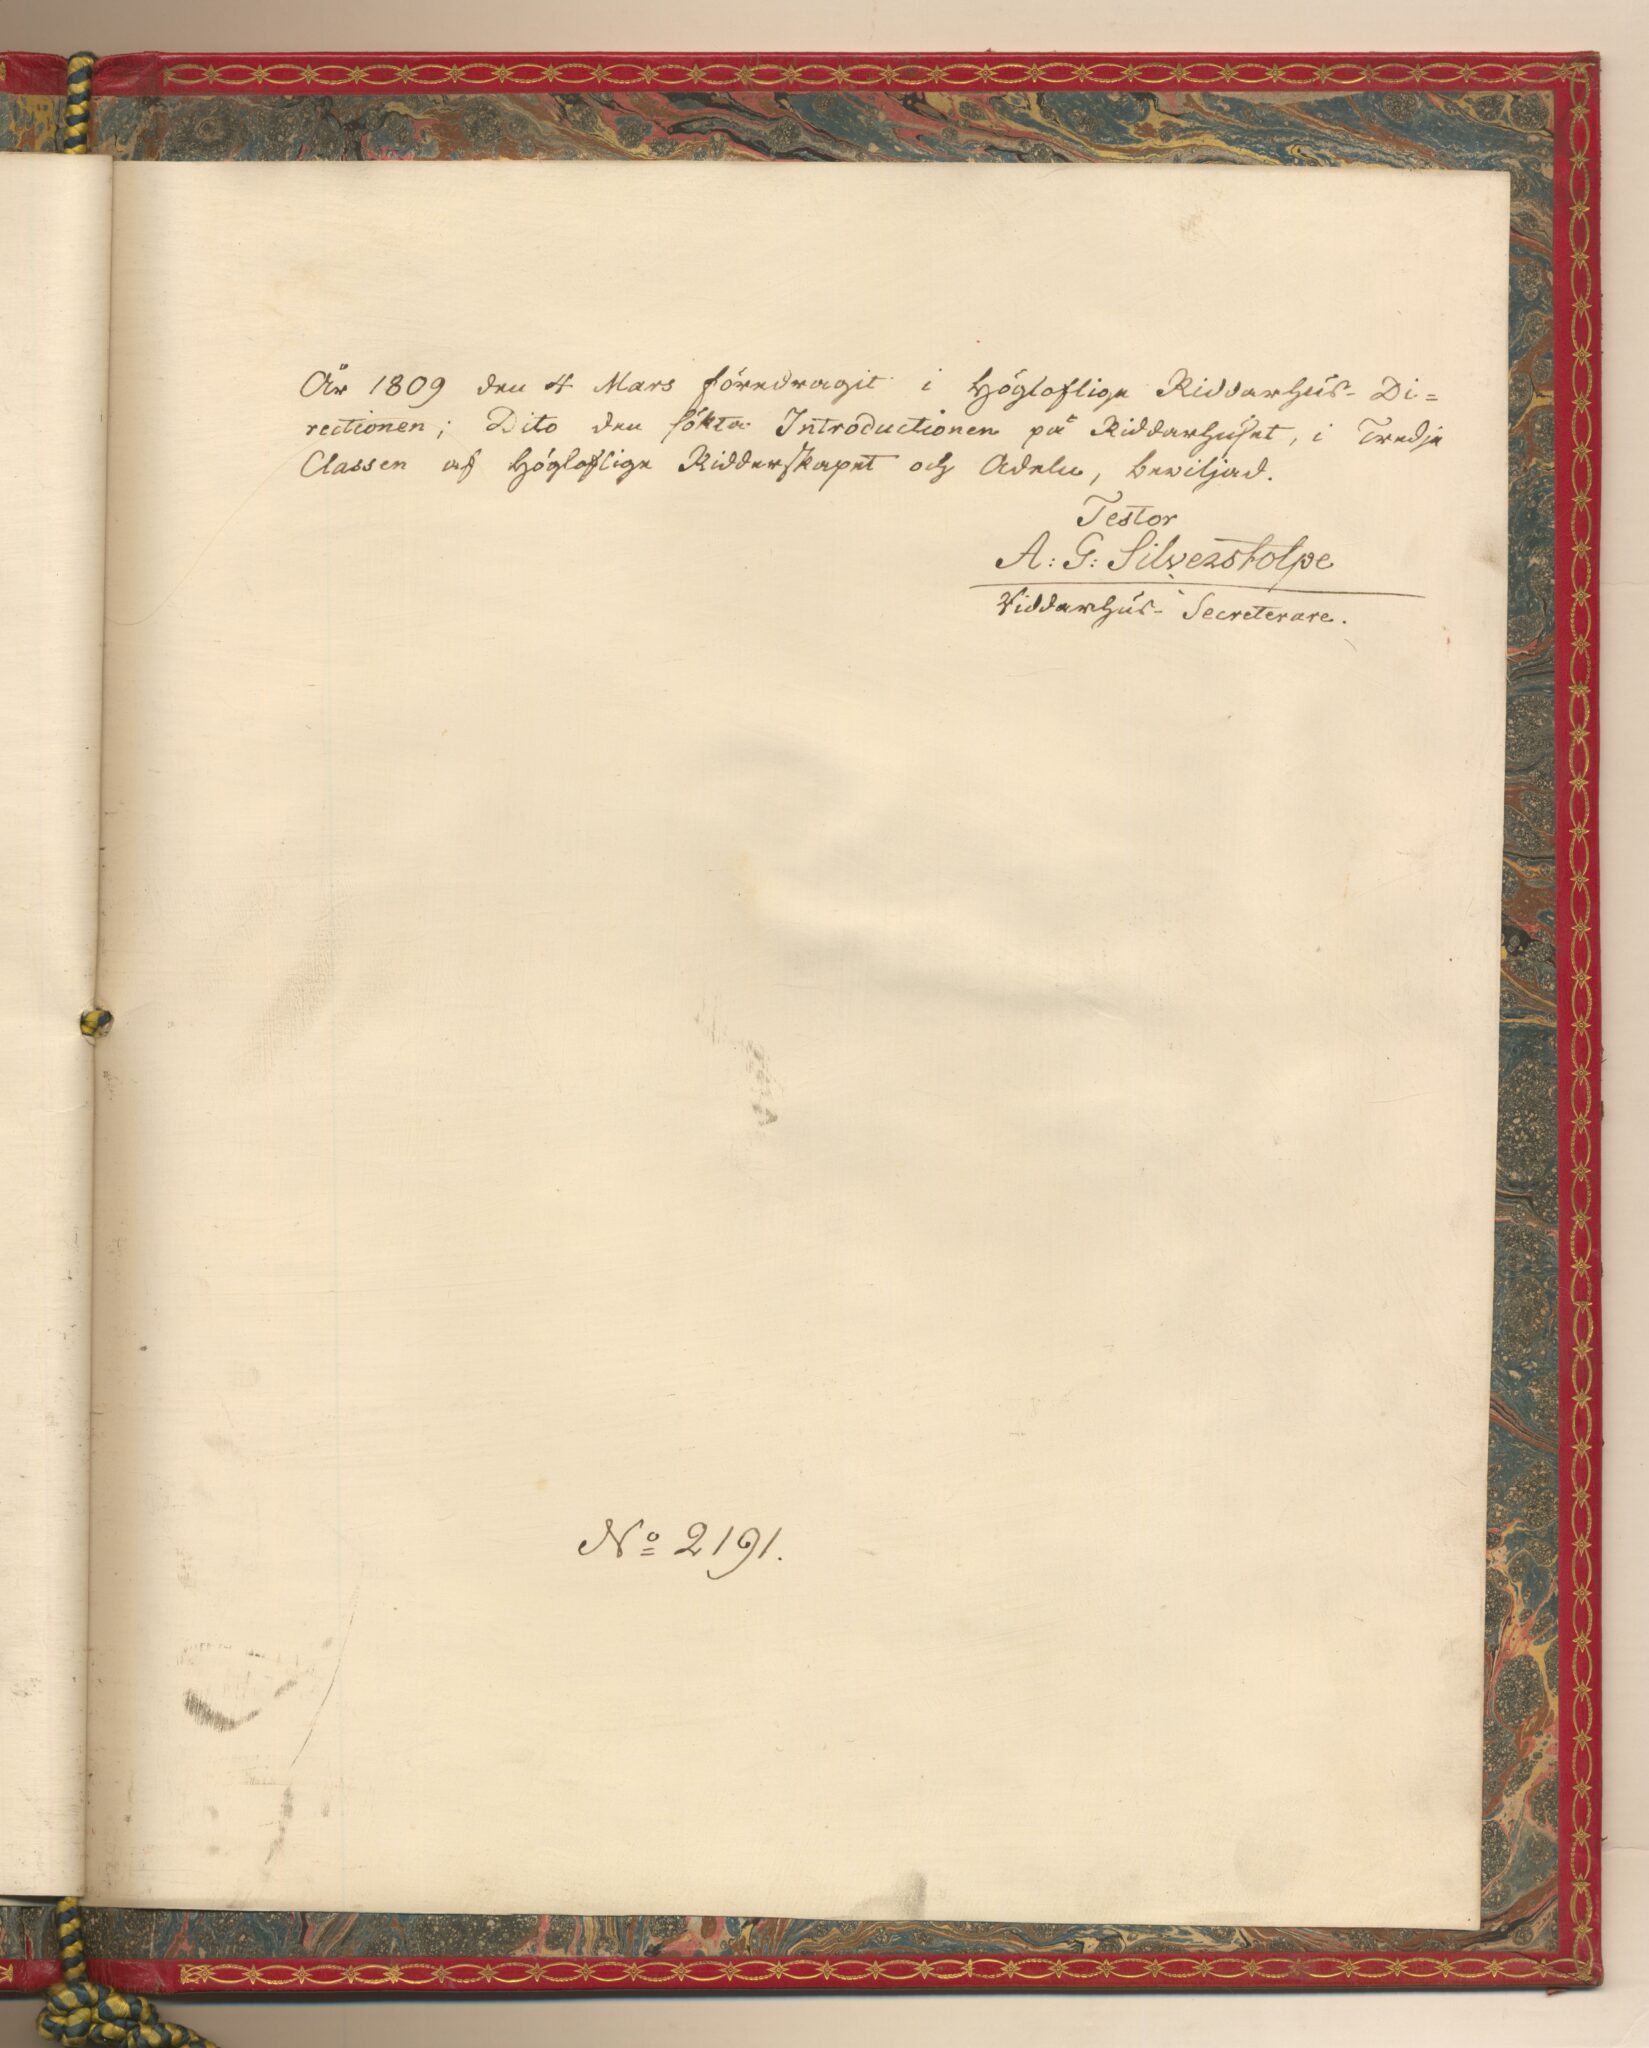 År 1809 den 4 Mars föredragit i Högloflige Riddarhus-Di=
rectionen; Dito den sökta Introductionen på Riddarhuset, i Tredje
Classen af Högloflige Ridderskapet och Adeln, bewiljad.
Testor
A: G: Silverstolpe
Riddarhus-Secreterare.
No 2191.